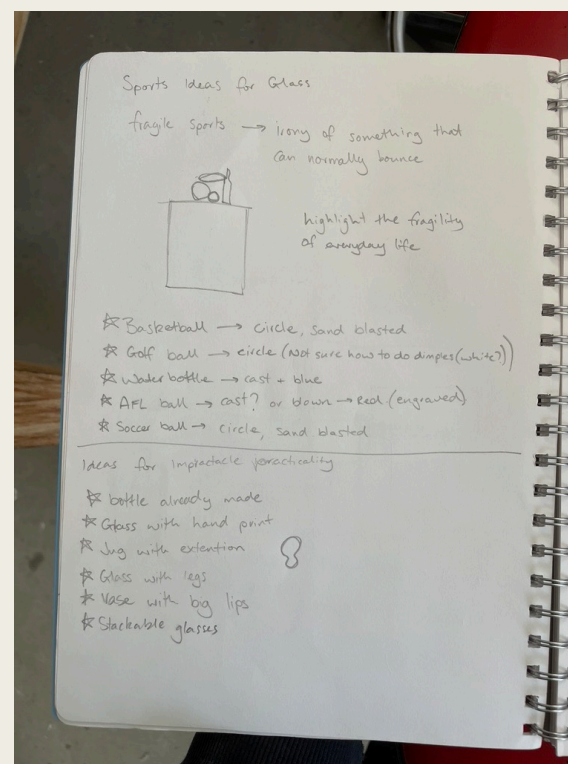 Sports Ideas for Glass
fragile sports → irony of something that
can normally bounce
highlight the fragility
of everyday life
☆ Basketball → circle, sand blasted
☆ Golf ball → circle (Not sure how to do dimples (white?))
☆ Water bottle → cast + blue
☆ AFL ball → cast? or blown → Red (engraved)
☆ Soccer ball → circle, sand blasted
Ideas for impractacle practicality
☆ bottle already made
☆ Glass with hand print
☆ Jug with extention
☆ Glass with legs
☆ Vase with big lips
☆ Stackable glasses